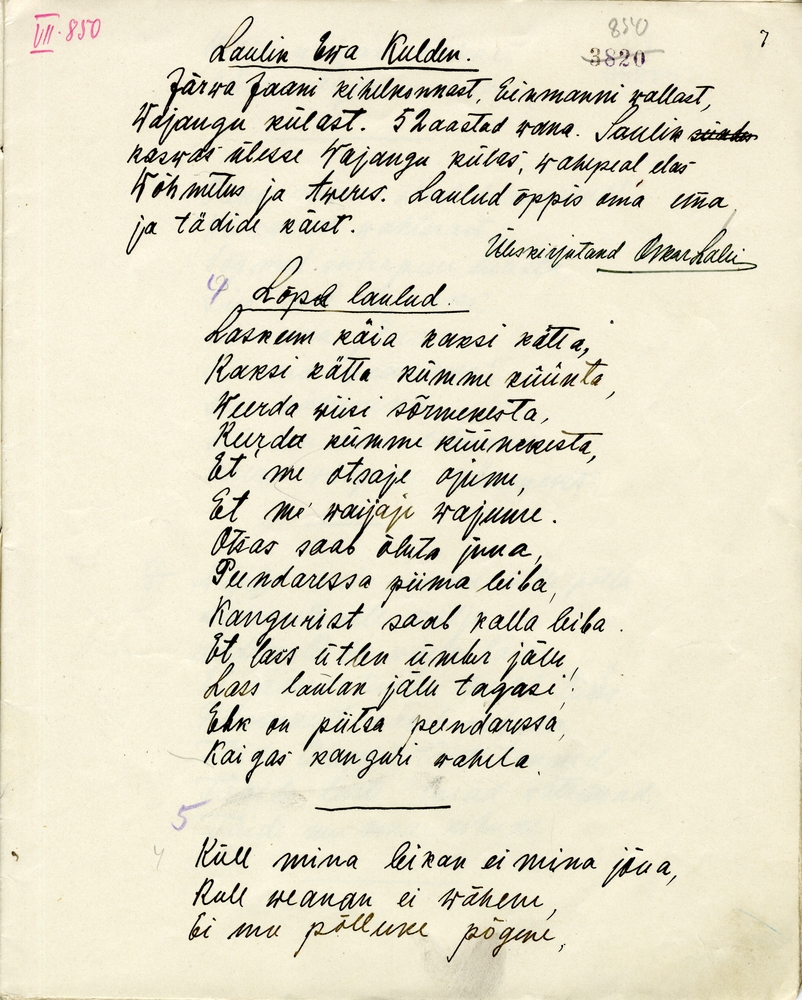 VII. 850
850
3820
7
Laulik Ewa Kulden.
Järwa Jaani kihelkonnast, Einmanni wallast,
Wajangu külast. 52 aastad wana. Laulik
kaswas ülesse Wajangu külas, wahepeal elas
Wõhmetus ja Aweres. Laulud õppis oma ema
ja tädide käest.
Üleskirjutand Oskar
4
Lõpel laulud.
Laskem käia kaksi kätta,
Kaksi kätta kümme küünta,
Weerda wiisi sõrmekesta,
Keerda kümme küünekesta,
Et me otsaje ojume,
Et me waijaje wajume.
Otsas saab õluta juua,
Peendaressa piima leiba,
Kangurist saab kalla leiba.
Et lass ütlen ümber jälle,
Lass laulan jälle tagasi!
Ehk on piitsa peendaressa,
Kaigas kanguri wahela.
5
Küll mina leikan ei mina jõua,
Küll weanan ei wähene,
Ei mu põlluke põgene,